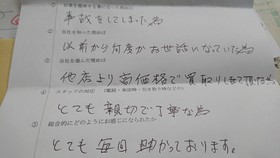 事故をしてしまった為
② 当社を知った理由は
以前から何度かお世話になっていた為
③ 当社を選んだ理由は
他店より高価格で買取りして頂いた為
④ スタッフの対応
とても親切で丁寧な為
⑤ 総合的にどのようにお感じになられたか
とても毎回助かっております。